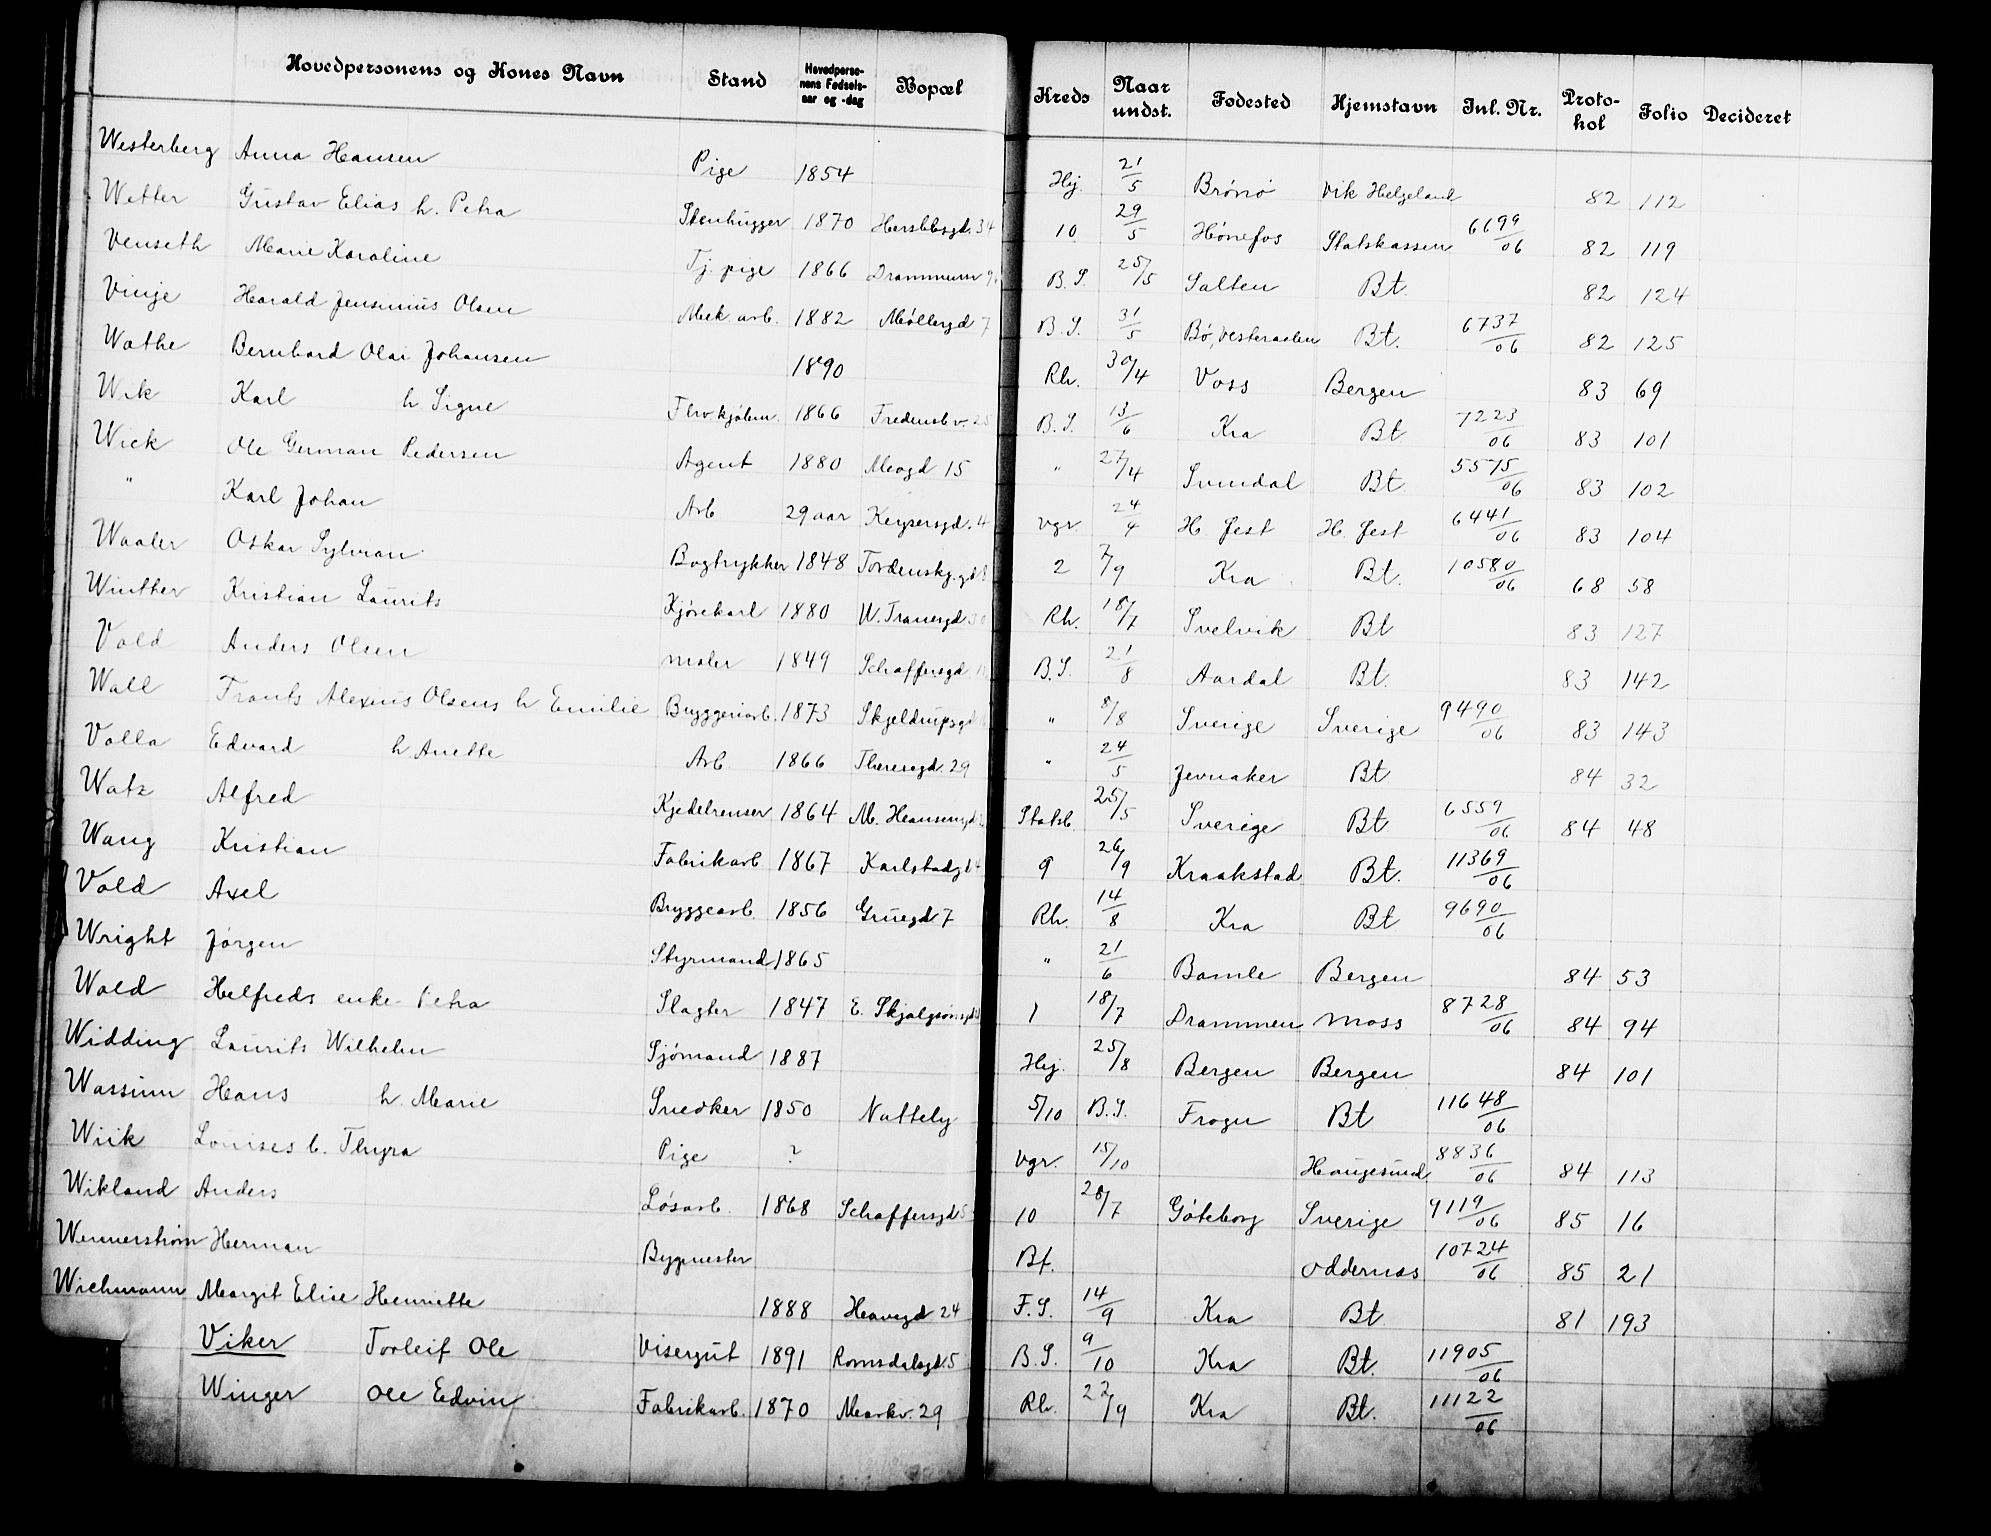 Hovedpersonens og Kones Navn Stand Hovedpersonens Fødselsaar og -dag Bopæl Kreds Naar undst. Fødested Hjemstavn Inl. Nr. Protokol Folio Decideret
Westerberg Anna Hansen Pige 1854 Hj. 21/5 Brönö Vik Helgeland 82 112
Wetter Gustav Elias h. Petra Stenhugger 1870 Herslebsgd. 34 10 29/5 Hönefos Statskassen 6699/06 82 119
Venseth Marie Karoline Tj. pige 1866 Drammensv B. S. 25/5 Salten Bt. 82 124
Vinje Harald Jensenius Olsen Mek. arb. 1882 Möllergd 7 B. S. 31/5 Bö, Vesteraalen Bt. 6737/06 82 125
Wathe Bernhard Olai Johansen 1890 Rh. 30/4 Voss Bergen 83 69
Wik Karl h. Signe 1866 Fredensb.v. 25 B. S. 13/6 Kra Bt. 7223/06 83 101
Wick Ole German Pedersen Agent 1880 15 " 27/4 Bt. 5575/06 83 102
" Karl Johan Arb 29 aar Keysersgd. 4 Vgr. 24/4 H. Jest H. Jest 6441/06 83 104
Waaler Oskar Sylvan Bogtrykker 1848 Tordenskj.gd 2 7/9 Kra Bt. 10580/06 68 58
Winther Kristian Laurits Kjörekarl 1880 W. Tranesgd 30 Rh. 18/7 Svelvik Bt 83 127
Vold Anders Olsen Maler 1849 Schaffersgd B. S. 21/8 Aardal Bt. 83 142
Wall Frants Alexius Olsens h Emilie Bryggeriarb. 1873 Skjeldrupsgd " 8/8 Sverige Sverige 9490/06 83 143
Valla Edvard h. Anette Arb. 1866 Theresegd. 29 " 24/5 Jevnaker Bt 84 32
Watz Alfred Kjedelrenser 1864 M. Hansensgd Statsb. 25/5 Sverige Bt 6559/06 84 48
Wang Kristian Fabrikarb 1867 Karlstadgd 4 9 26/9 Kraakstad Bt. 11369/06
Vold Axel Bryggearb. 1856 Grüegd 7 Rh. 14/8 Kra Bt 9690/06
Wright Jörgen Styrmand 1865 " 21/6 Bamle Bergen 84 53
Wold Helfreds enke Petra Slagter 1847 E. Skjalgsönsgd 1 18/7 Drammen Moss 8728/06 84 94
Widding Laurits Wilhelm Sjömand 1887 Hj. 25/8 Bergen Bergen 84 101
Wassum Hans h. Marie Snedker 1850 Natteby 5/10 B. S. Frogn Bt 11648/06
Wiik Louises b. Thyra Pige ? Vgr. 15/10 Haugesund 8836/06 84 113
Wikland Anders Lösarb. 1868 Schaffersgd 5 10 28/7 Göteborg Sverige 9119/06 85 16
Wennerström Herman Bygmester Bf. Oddernes 10724/06 85 21
Wichmann Margit Elise Henriette 1888 Havegd 24 F. S. 14/9 Kra Bt 81 193
Viker Torleif Ole Visergut 1891 Romsdalsgd. 5 B. S. 9/10 Kra Bt. 11905/06
Winger Ole Edvin Fabrikarb. 1870 Markv. 29 Rh. 22/9 Kra Bt. 11122/06